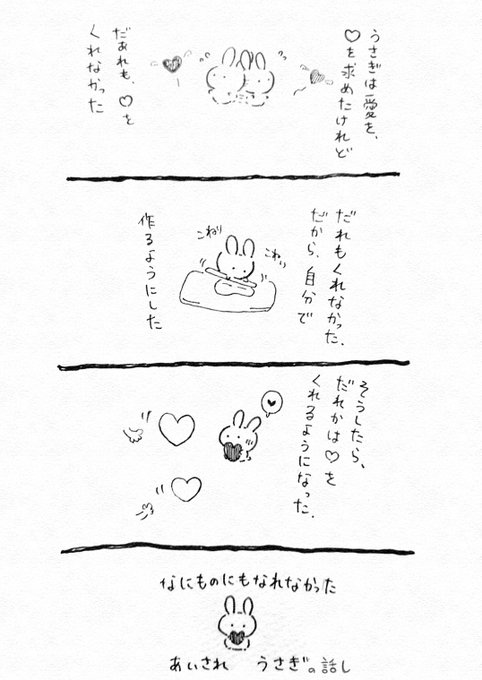 うさぎは愛を、
♡を求めたけれど
だあれも、♡を
くれなかった
だれもくれなかった、
だから、自分で
こねり
こねり
作るようにした
そうしたら、
だれかは♡を
くれるようになった、
なにものにもなれなかった
あいされ うさぎの話し